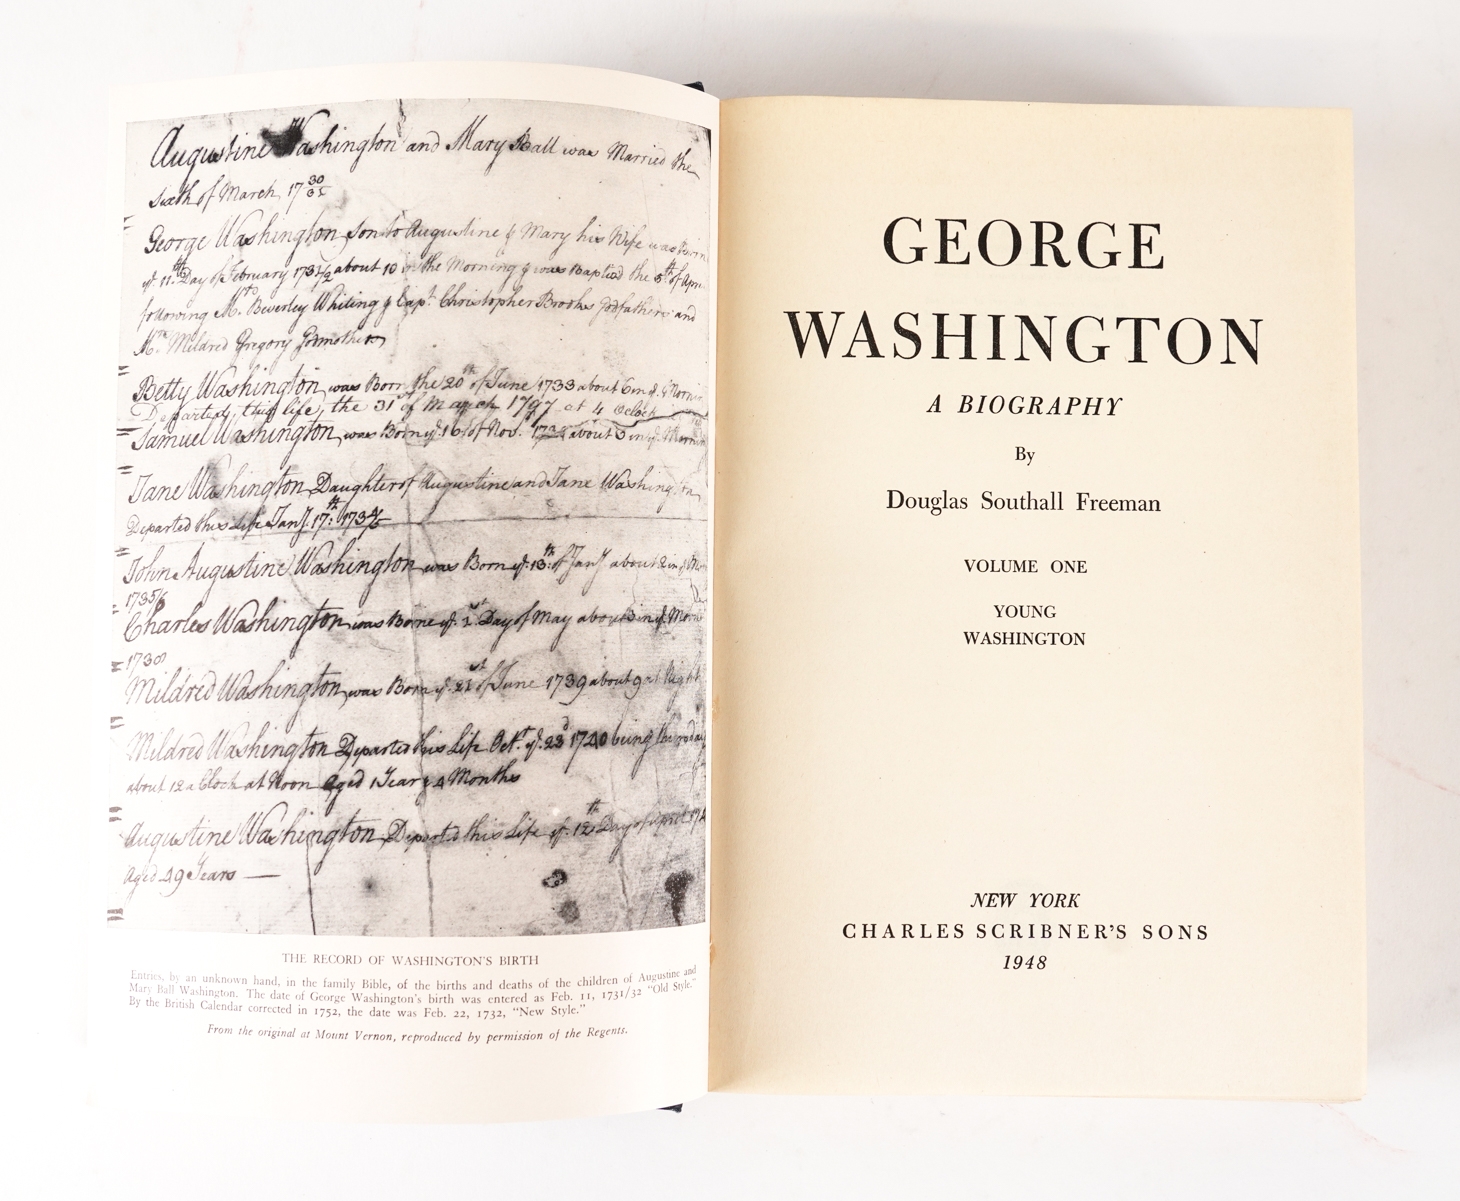 Augustine Washington and Mary Ball was Married the
Sixth of March 17 30/31
George Washington Son to Augustine & Mary his Wife was Born
ye. 11th. Day of February 1731/2 about 10 in the Morning & was Baptised the 5th of Apr
following Mr. Beverley Whiting & Capt. Christopher Brooks Godfathers and
Mrs. Mildred Gregory Godmother
Betty Washington was Born the 20th of June 1733 about 6 in ye. Mornin
Departed this life, the 31st of March 1797 at 4 Oclock
Samuel Washington was Born ye. 16 of Nov. 1734 about 3 in ye. Mornin
Jane Washington Daughter of Augustine and Jane Washington
Departed this Life Jany. 17th: 1734/5
John Augustine Washington was Born ye. 13th. of Jany about 2 in ye Mor
1735/6
Charles Washington was Borne ye. 2 Day of May about 3 in ye. Morn
1738
Mildred Washington was Born ye. 21st of June 1739 about 9 at Night
Mildred Washington Departed this Life Octr. ye. 23d 1740 being
about 12 a Clock at Noon Aged 1 Year & 4 Months
Augustine Washington Departed this Life ye. 12th Day of April 174
Aged 49 Years —
THE RECORD OF WASHINGTON'S BIRTH
Entries, by an unknown hand, in the family Bible, of the births and deaths of the children of Augustine and
Mary Ball Washington. The date of George Washington's birth was entered as Feb. 11, 1731/32 "Old Style."
By the British Calendar corrected in 1752, the date was Feb. 22, 1732, "New Style."
From the original at Mount Vernon, reproduced by permission of the Regents.
GEORGE
WASHINGTON
A BIOGRAPHY
By
Douglas Southall Freeman
VOLUME ONE
YOUNG
WASHINGTON
NEW YORK
CHARLES SCRIBNER'S SONS
1948